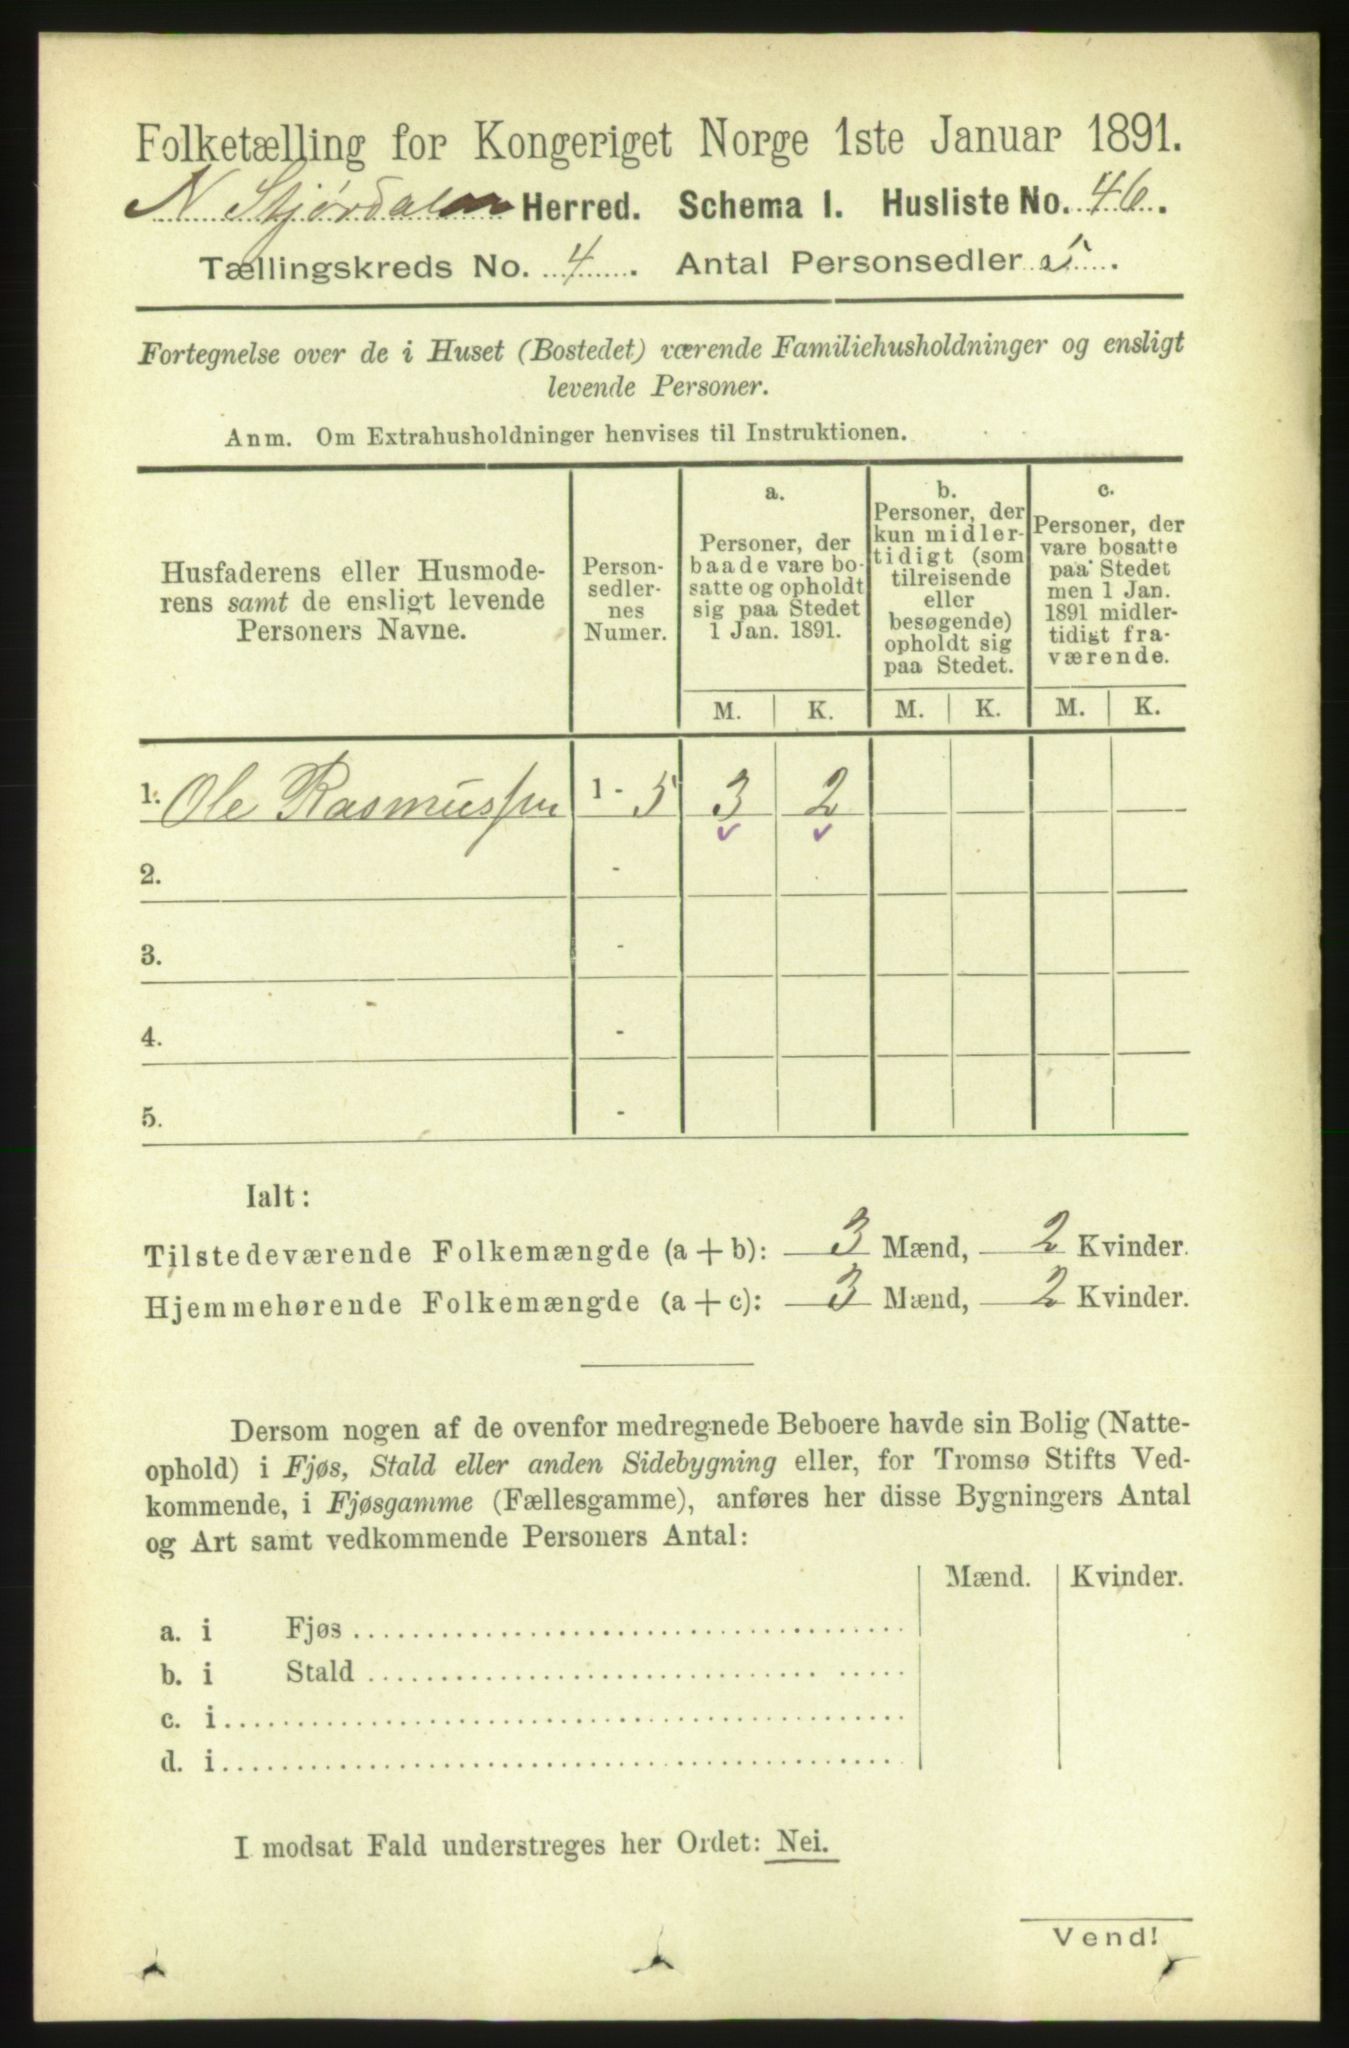 Folketælling for Kongeriget Norge 1ste Januar 1891.
N Stjørdalen Herred. Schema I. Husliste No. 46.
Tællingskreds No. 4. Antal Personsedler 5.
Fortegnelse over de i Huset (Bostedet) værende Familiehusholdninger og ensligt
levende Personer.
Anm. Om Extrahusholdninger henvises til Instruktionen.
Husfaderens eller Husmode-
rens samt de ensligt levende
Personers Navne.
Person-
sedler-
nes
Numer.
a.
Personer, der
baade vare bo-
satte og opholdt
sig paa Stedet
1 Jan. 1891.
b.
Personer, der
kun midler-
tidigt (som
tilreisende
eller
besøgende)
opholdt sig
paa Stedet.
c.
Personer, der
vare bosatte
paa Stedet
men 1 Jan.
1891 midler-
tidigt fra-
værende.
M. K. M. K. M. K.
1. Ole Rasmussen 1 - 5 3 2
2. -
3. -
4. -
5. -
Ialt:
Tilstedeværende Folkemængde (a + b): 3 Mænd, 2 Kvinder.
Hjemmehørende Folkemængde (a + c): 3 Mænd, 2 Kvinder.
Dersom nogen af de ovenfor medregnede Beboere havde sin Bolig (Natte-
ophold) i Fjøs, Stald eller anden Sidebygning eller, for Tromsø Stifts Ved-
kommende, i Fjøsgamme (Fællesgamme), anføres her disse Bygningers Antal
og Art samt vedkommende Personers Antal:
Mænd. Kvinder.
a. i Fjøs
b. i Stald
c. i
d. i
I modsat Fald understreges her Ordet: Nei.
Vend!